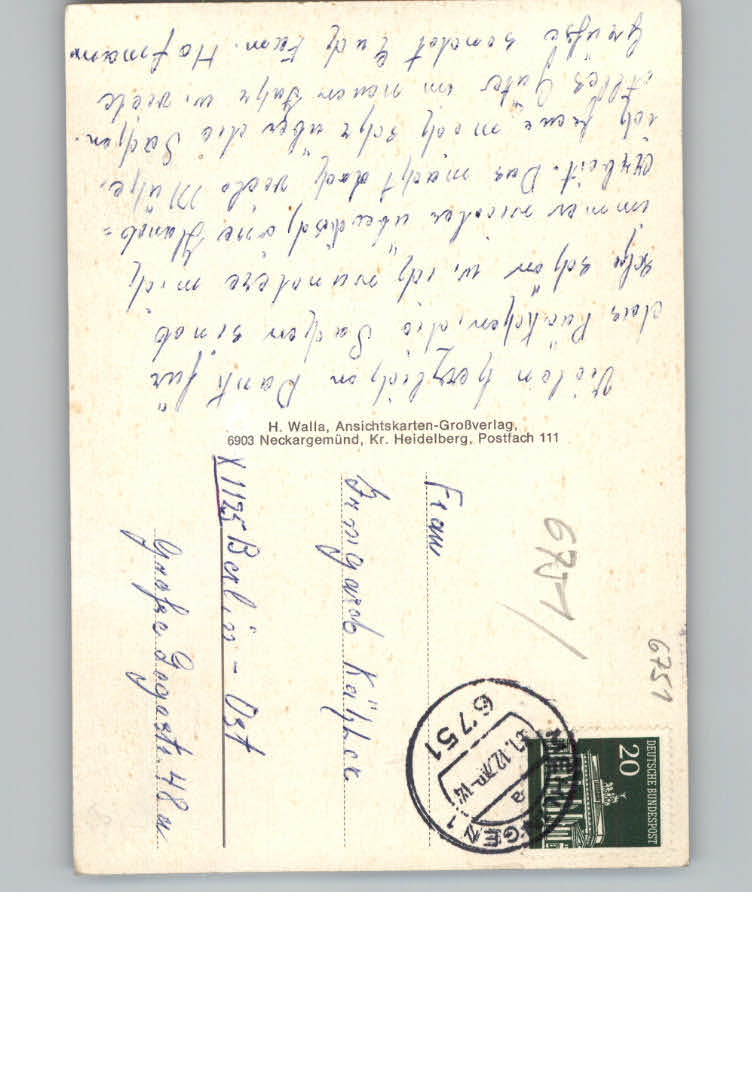 Vielen herzlichen Dank für
das Päckchen, die Sachen sind
sehr schön u. ich wundere mich
immer wieder über diese Hand=
arbeit. Das macht doch viele Mühe,
ich freue mich sehr über die Sachen.
Alles Gute im neuen Jahr u. viele
Grüße sendet Euch Fam. Hofmann
H. Walla, Ansichtskarten-Großverlag,
6903 Neckargemünd, Kr. Heidelberg, Postfach 111
6751
6751/
DEUTSCHE BUNDESPOST
20
6751
a
1
Frau
Irmgard
X 1125 Berlin - Ost
Große 48 a